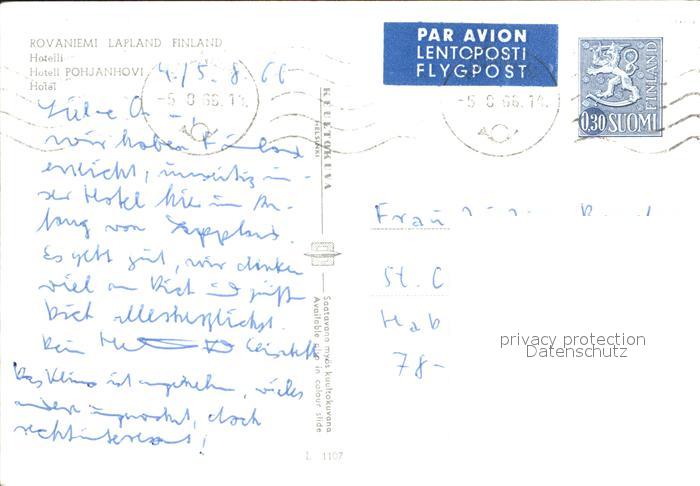 ROVANIEMI LAPLAND FINLAND
Hotelli
Hotell POHJANHOVI
Hotel
4./5.8.66
-5.8.66.14
PAR AVION
LENTOPOSTI
FLYGPOST
-5.8.66.14
FINLAND
0,30 SUOMI
Liebe
wir haben Finland
erreicht, in
ser Hotel hier im An-
fang von Lappland.
Es geht gut, wir denken
viel an Dich und grüßen
Dich allerherzlichst.
Dein
Das Klima ist angenehm, vieles
andere ungewohnt, doch
recht interessant!
KUULTOKUVA
HELSINKI
Saatavana myös kuultokuvana
Available also in colour slide
L 1107
Frau
St. C
Hab
78-
privacy protection
Datenschutz